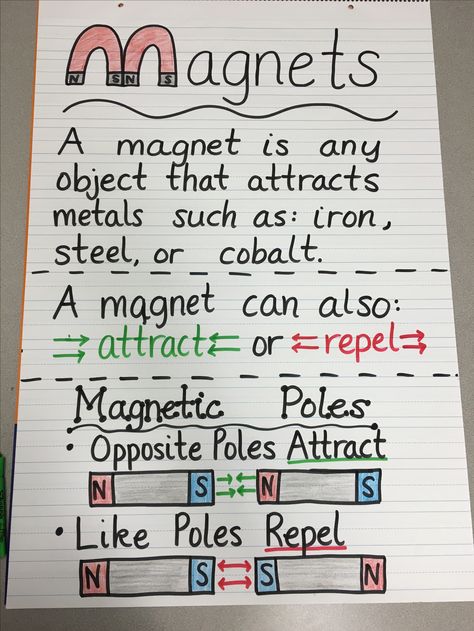 Magnets
N S N S
A magnet is any
object that attracts
metals such as: iron,
steel, or cobalt.
A magnet can also:
attract or repel
Magnetic Poles
• Opposite Poles Attract
N S N S
• Like Poles Repel
N S S N